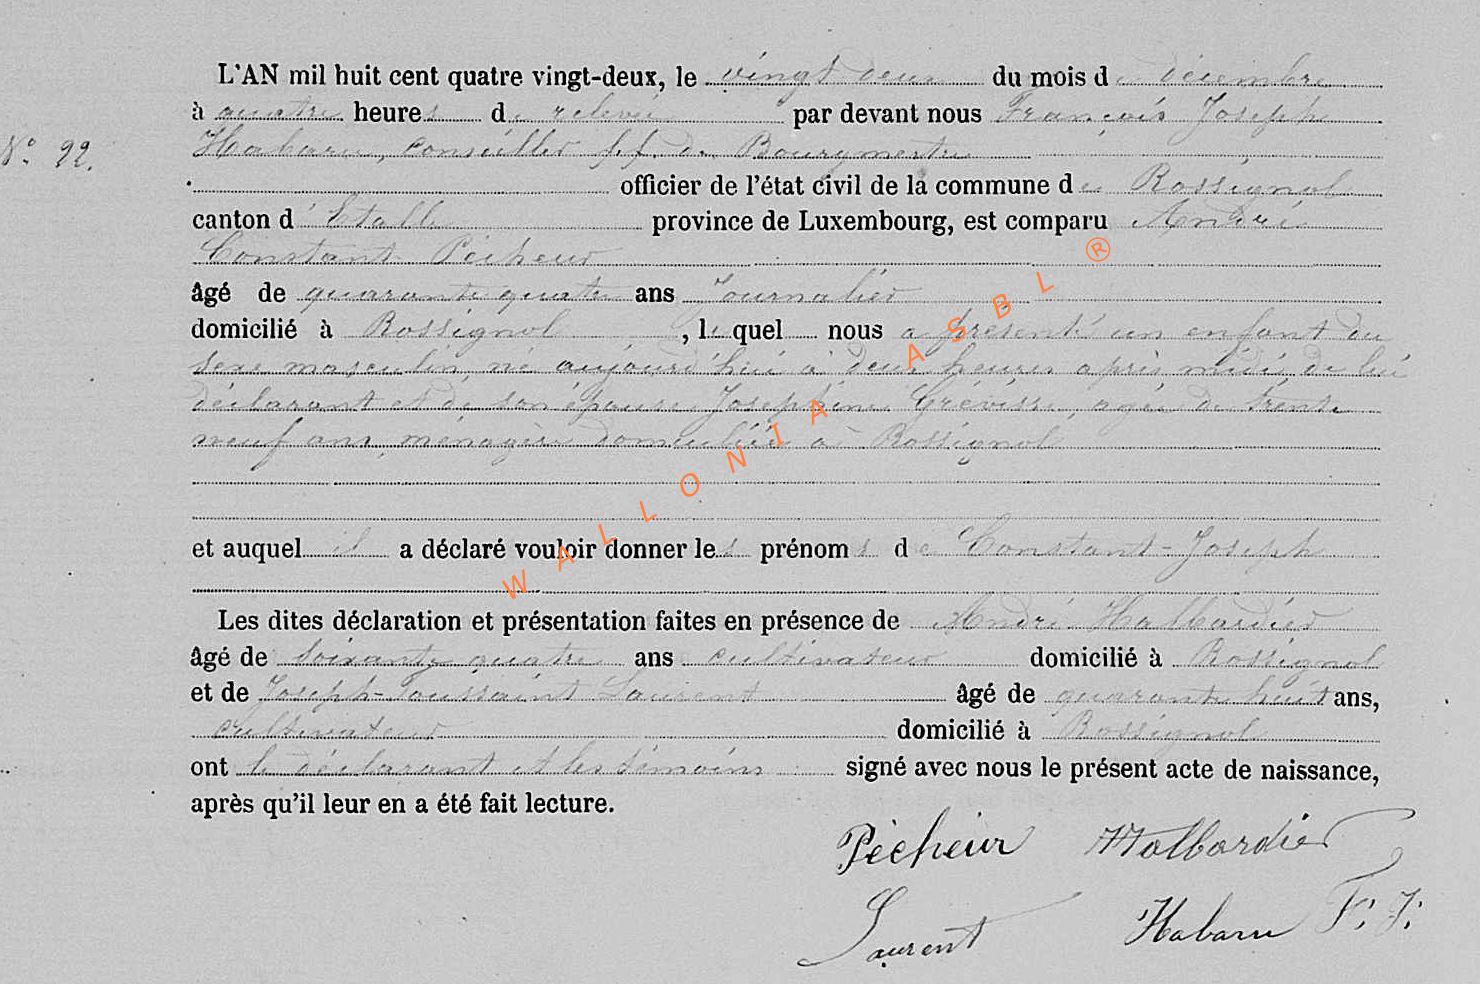 L'AN mil huit cent quatre vingt-deux, le vingt deux du mois de décembre
à quatre heures de relevée par devant nous François Joseph
N° 22.
Habaru, conseiller f.f. de Bourgmestre
officier de l'état civil de la commune de Rossignol
canton d'Etalle province de Luxembourg, est comparu André
Constant Pêcheur
âgé de quarante quatre ans Journalier
domicilié à Rossignol, lequel nous a présenté un enfant du
sexe masculin, né aujourd'hui à deux heures après midi, de lui
déclarant et de son épouse, Joséphine Grévisse, agée de trente
neuf ans, ménagère domiciliée à Rossignol
et auquel il a déclaré vouloir donner les prénoms de Constant-Joseph
Les dites déclaration et présentation faites en présence de André Halbardier
âgé de soixante quatre ans cultivateur domicilié à Rossignol
et de Joseph-Toussaint Laurent âgé de quarante huit ans,
cultivateur domicilié à Rossignol
ont le déclarant et les témoins signé avec nous le présent acte de naissance,
après qu'il leur en a été fait lecture.
Pêcheur Halbardier
Laurent Habaru F. J.
WALLONIA ASBL ®